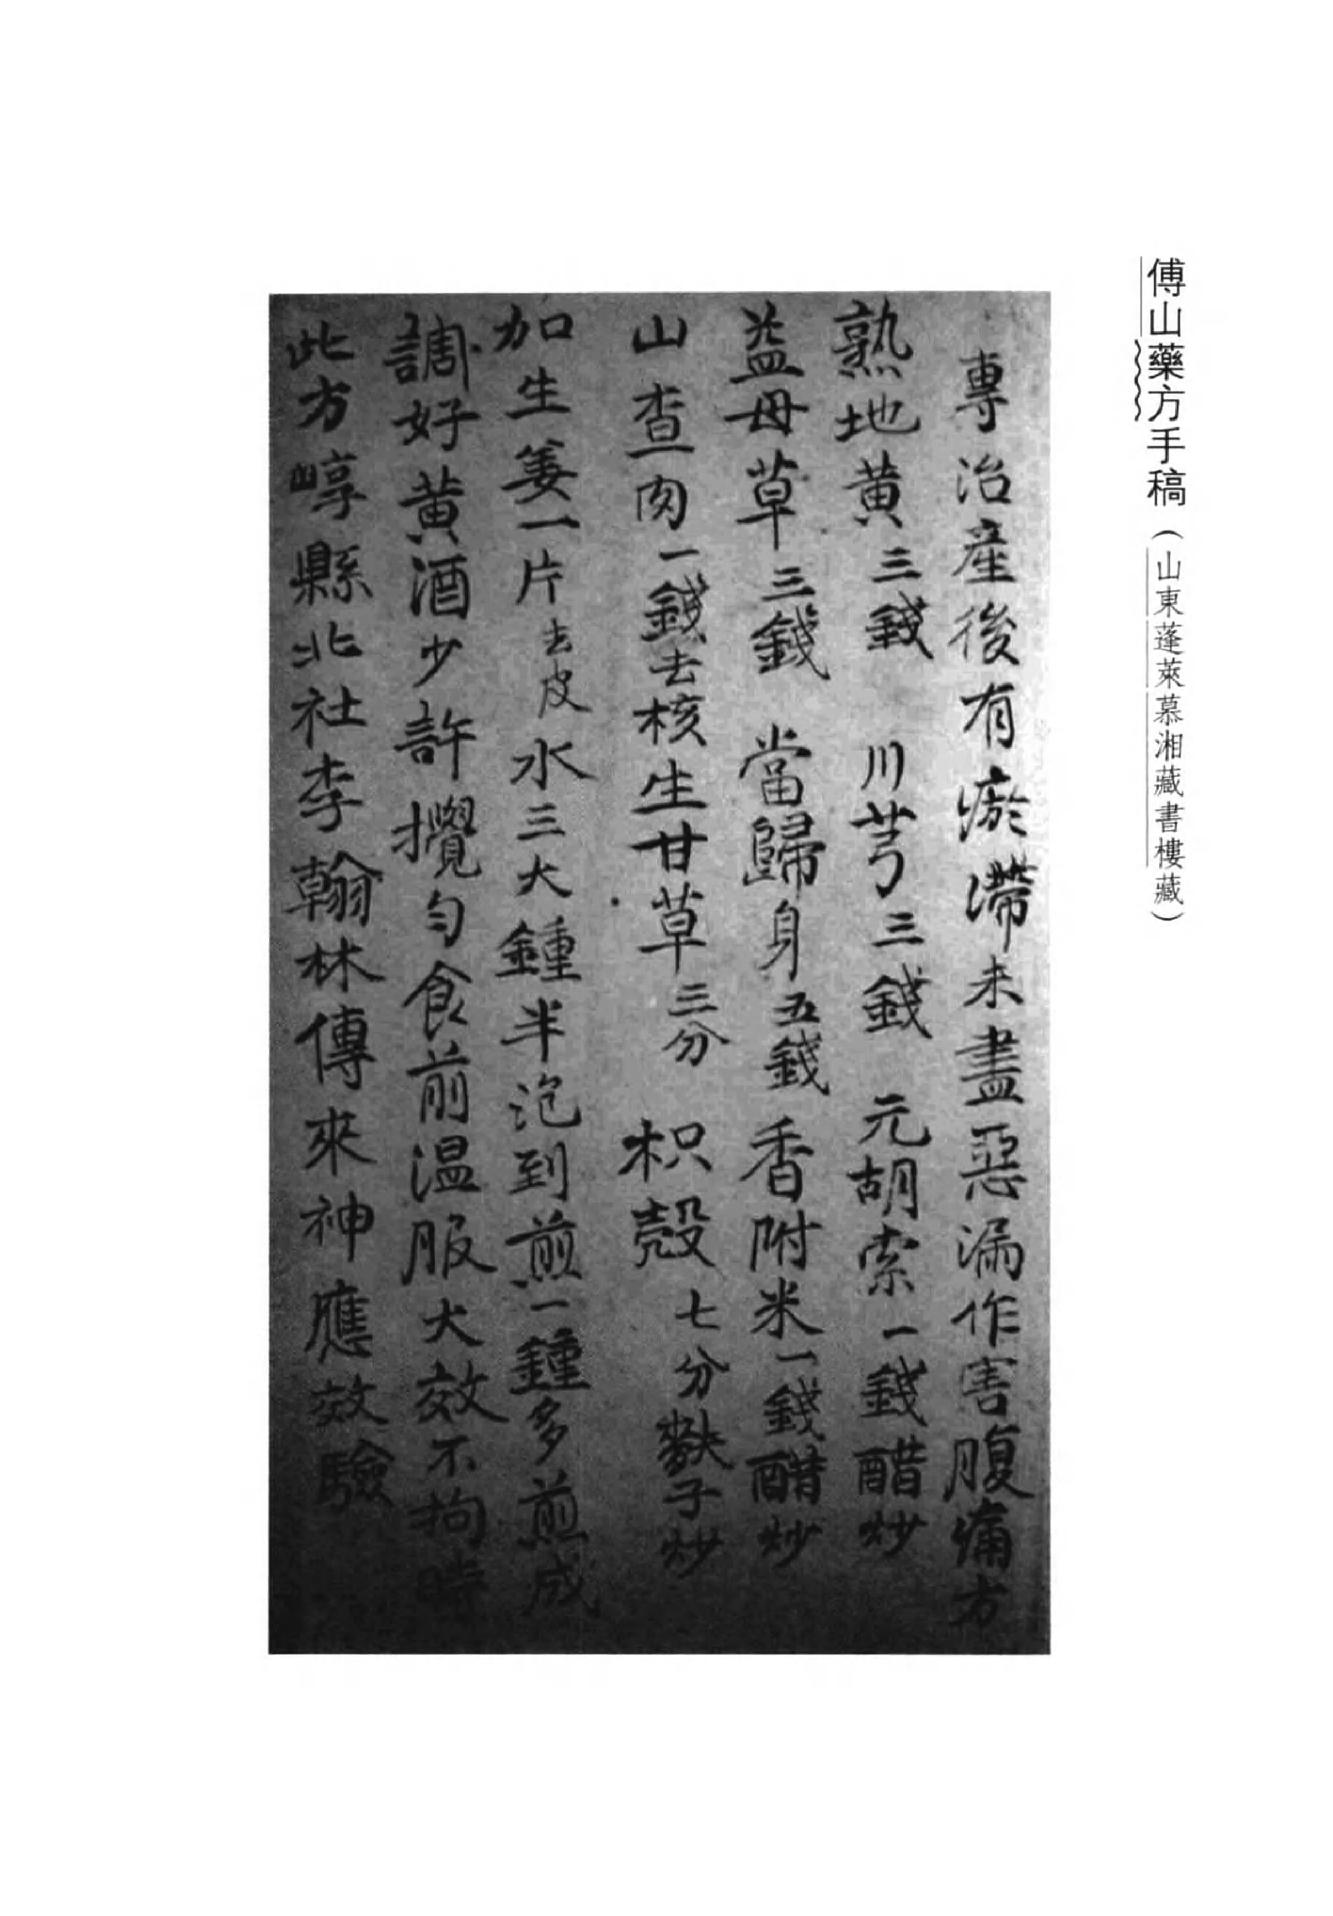 傅山藥方手稿（山東蓬萊慕湘藏書樓藏）
專治產後有瘀滯未盡惡漏作害腹痛方
熟地黃三錢　川芎三錢　元胡索一錢醋炒
益母草三錢　當歸身五錢　香附米一錢醋炒
山查肉一錢去核　生甘草三分　枳殼七分麩子炒
加生姜一片去皮水三大鍾半泡到煎一鍾多煎成
調好黃酒少許攪勻食前温服大效不拘時
此方崞縣北社李翰林傳來神應效驗